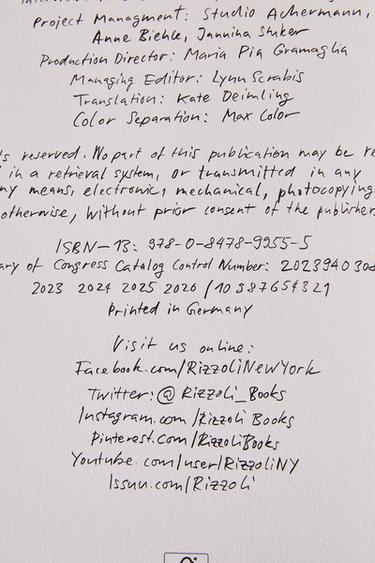 Project Managment: Studio Achermann,
Anne Biehle, Jannina Stuker
Production Director: Maria Pia Gramaglia
Managing Editor: Lynn Scrabis
Translation: Kate Deimling
Color Separation: Max Color
's reserved. No part of this publication may be re
in a retrieval system, or transmitted in any
ny means, electronic, mechanical, photocopying
otherwise, without prior consent of the publisher
ISBN-13: 978-0-8478-9955-5
ary of Congress Catalog Control Number: 202394030
2023 2024 2025 2026 / 10 9 8 7 6 5 4 3 2 1
Printed in Germany
Visit us online:
Facebook.com/RizzoliNewYork
Twitter: @Rizzoli_Books
Instagram.com/RizzoliBooks
Pinterest.com/RizzoliBooks
Youtube.com/user/RizzoliNY
Issuu.com/Rizzoli